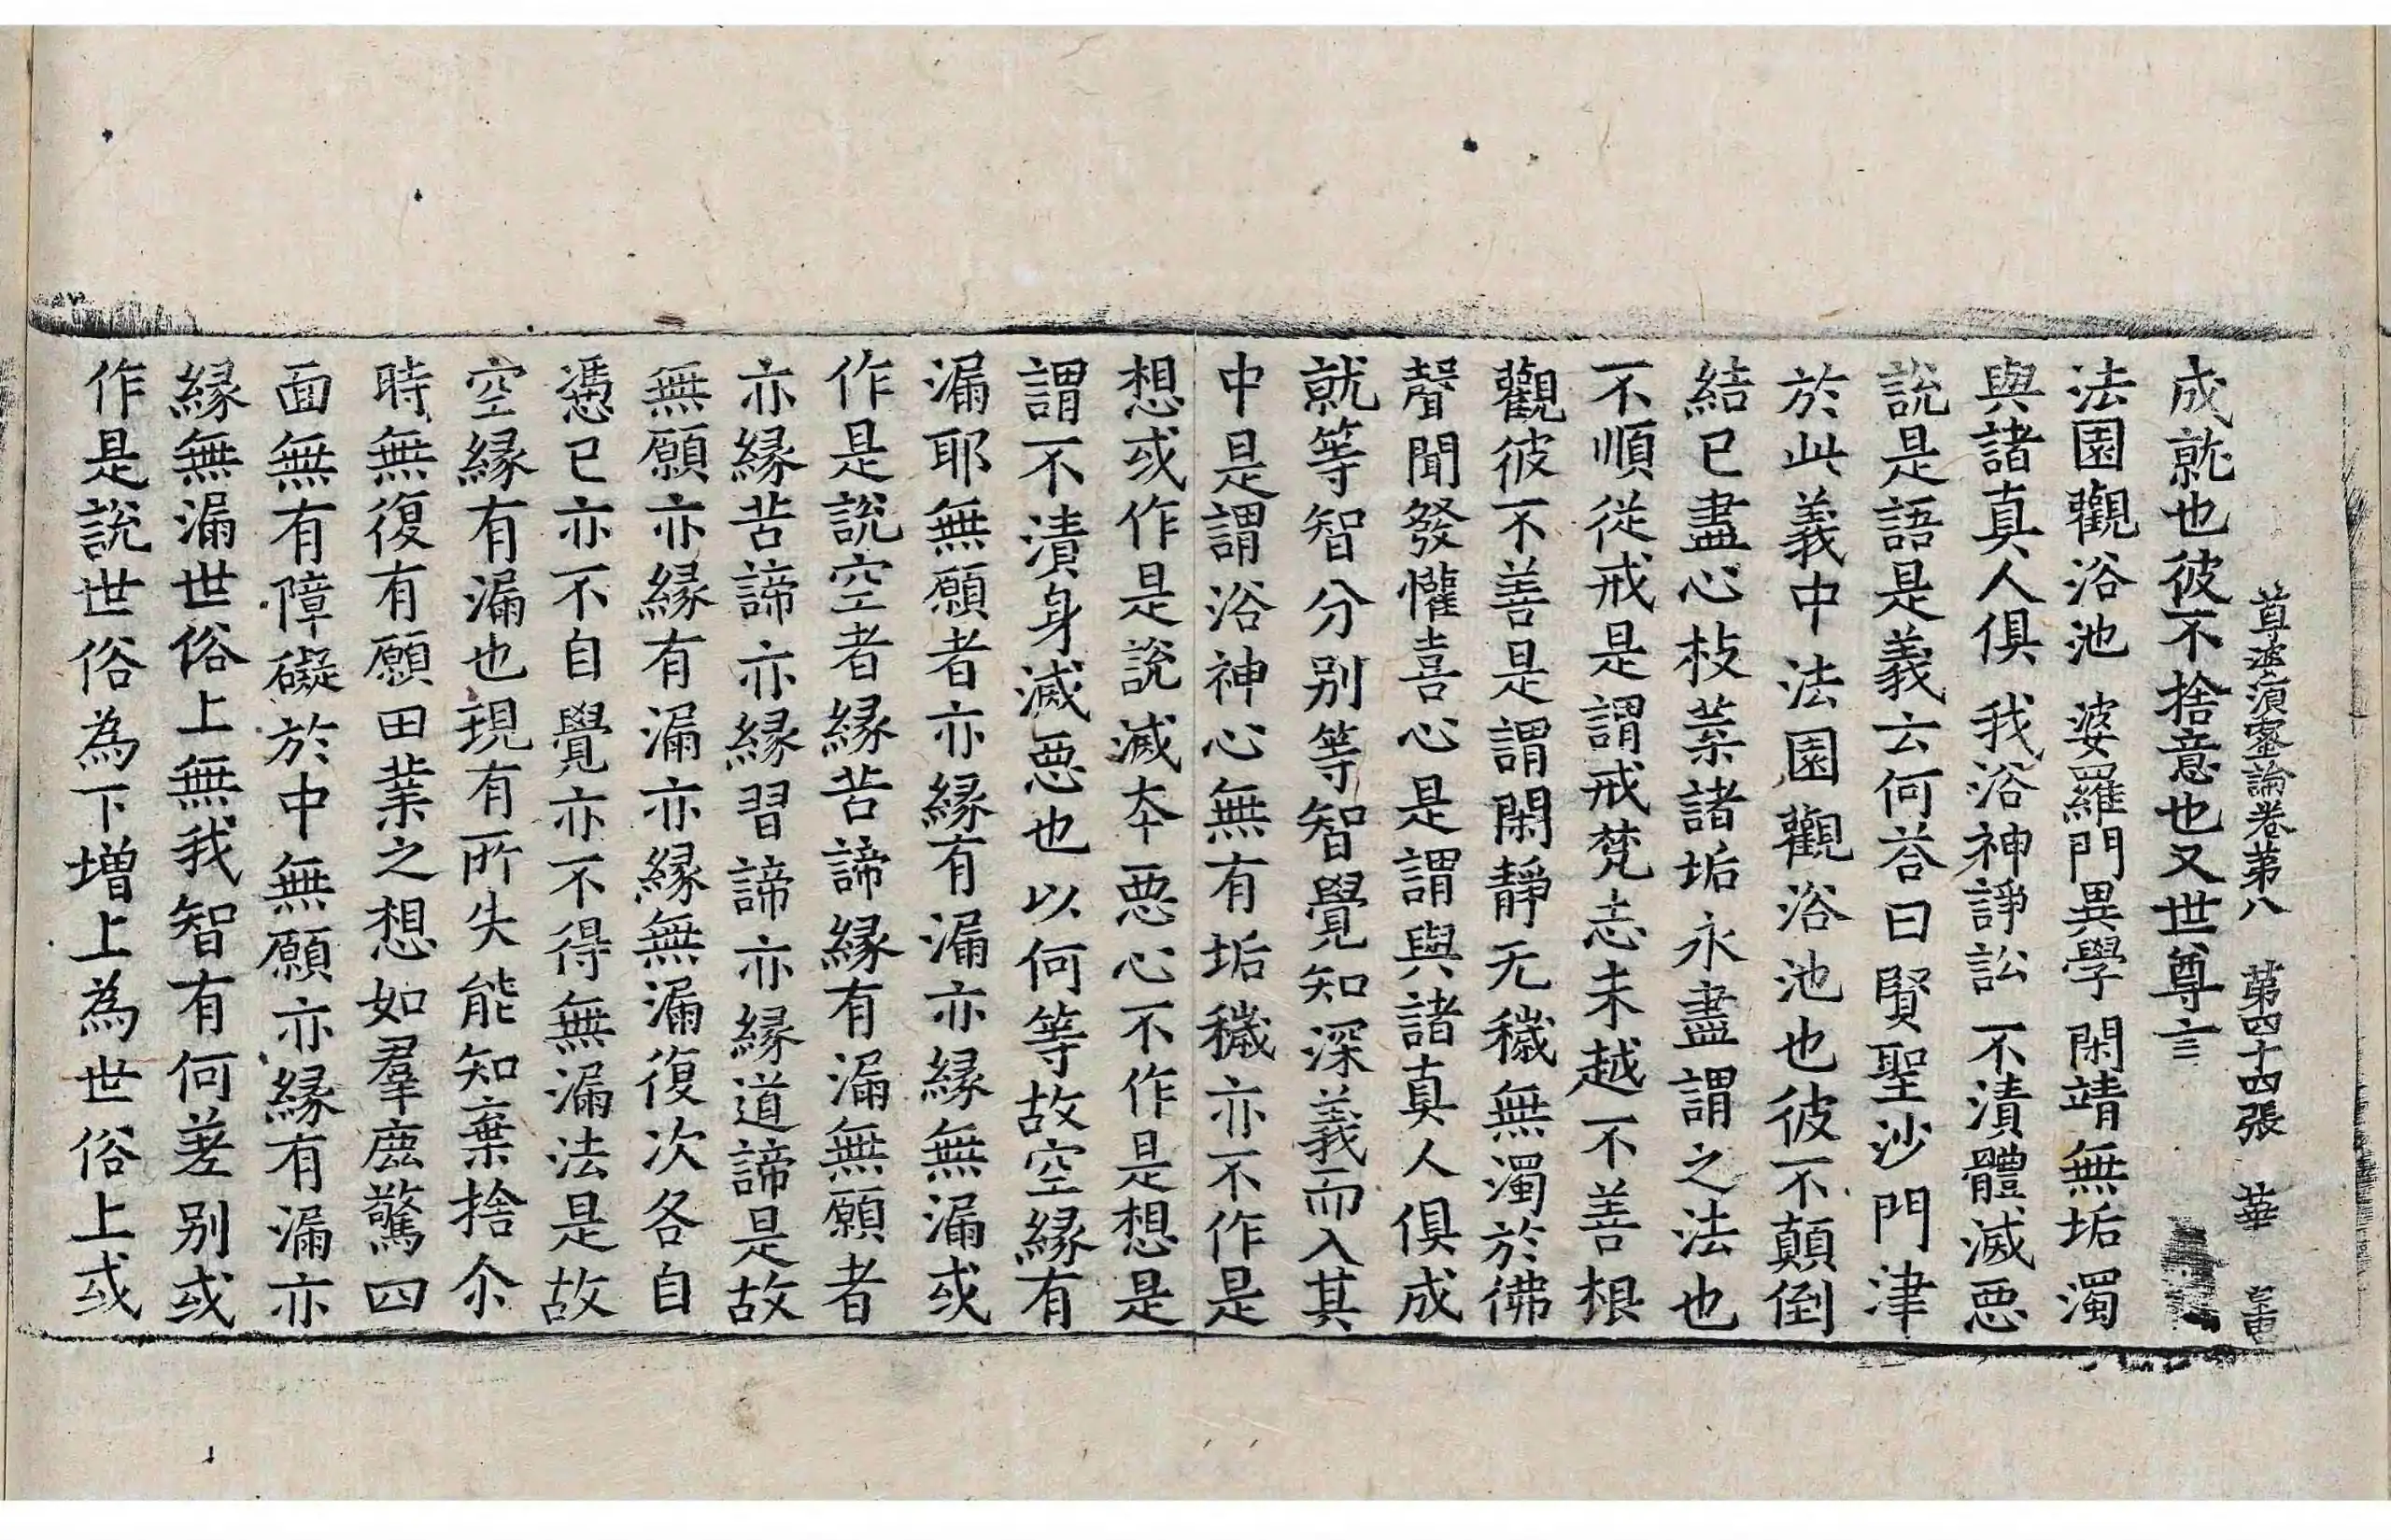 尊婆須蜜論卷第八　第四十四張　華
成就也彼不捨意也又世尊言
法園觀浴池　婆羅門異學　閑靖無垢濁
與諸真人俱　我浴神諍訟　不漬體滅惡
說是語是義云何荅曰賢聖沙門津
於此義中法園觀浴池也彼不顛倒
結已盡心枝葉諸垢永盡謂之法也
不順從戒是謂戒梵志未越不善根
觀彼不善是謂閑靜无穢無濁於佛
聲聞發懽喜心是謂與諸真人俱成
就等智分別等智覺知深義而入其
中是謂浴神心無有垢穢亦不作是
想或作是說滅本惡心不作是想是
謂不漬身滅惡也以何等故空緣有
漏耶無願者亦緣有漏亦緣無漏或
作是說空者緣苦諦緣有漏無願者
亦緣苦諦亦緣習諦亦緣道諦是故
無願亦緣有漏亦緣無漏復次各自
憑已亦不自覺亦不得無漏法是故
空緣有漏也現有所失能知棄捨尒
時無復有願田業之想如羣鹿驚四
面無有障礙於中無願亦緣有漏亦
緣無漏世俗上無我智有何差別或
作是說世俗為下增上為世俗上或